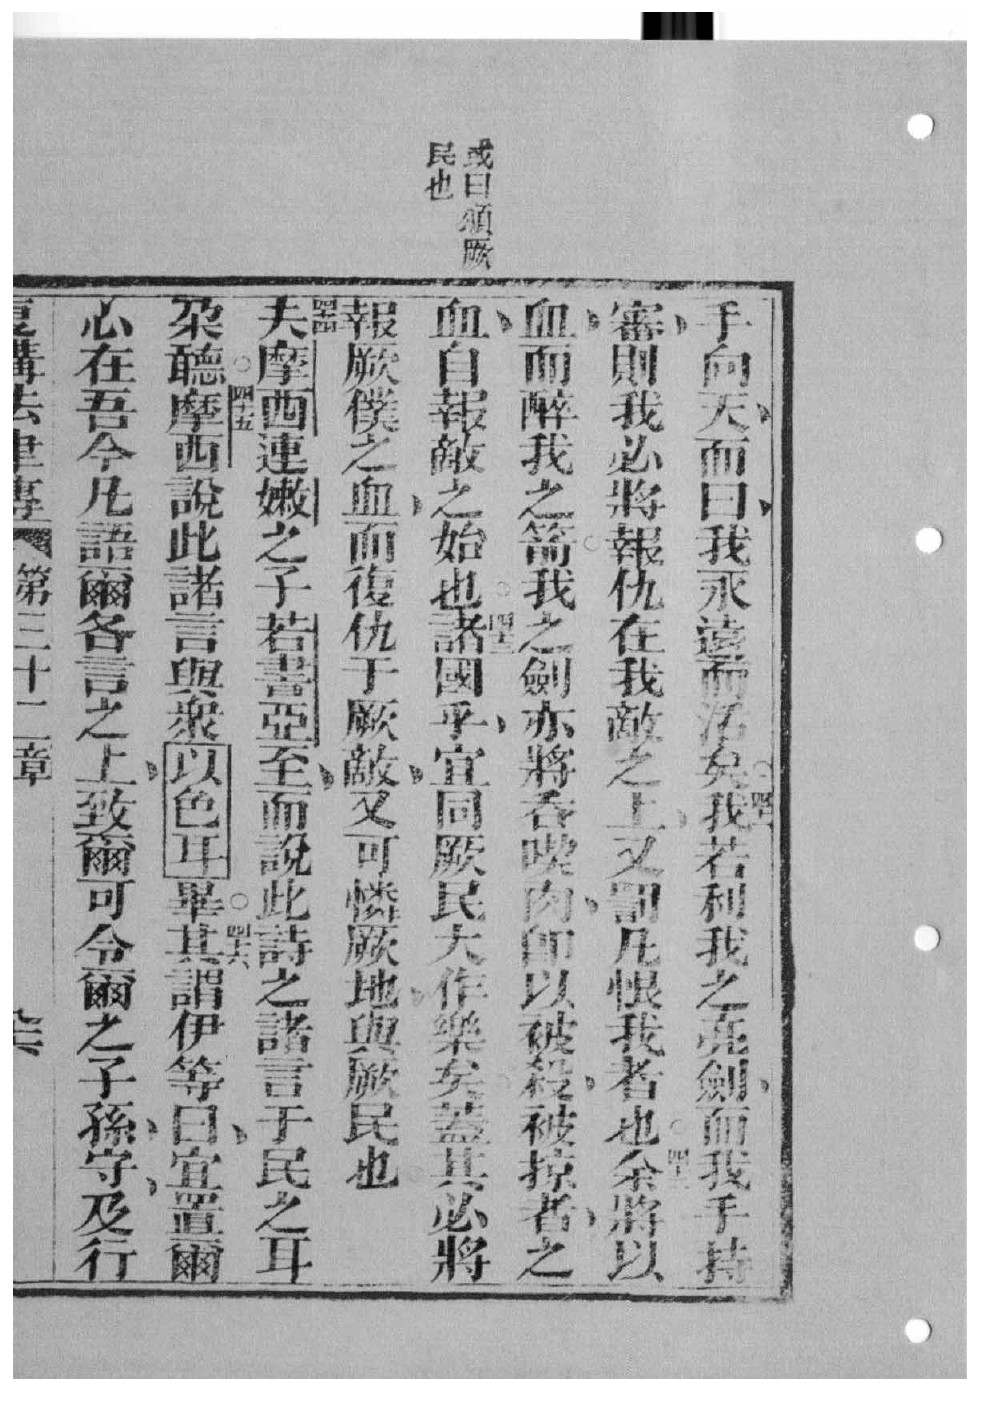 或曰頌厥
民也
手向天而曰我永遠而活矣四一我若利我之亮劍而我手持
審則我必將報仇在我敵之上又罰凡恨我者也四二余將以
血而醉我之箭我之劍亦將吞喫肉卽以被殺被掠者之
血自報敵之始也四三諸國乎宜同厥民大作樂矣蓋其必將
報厥僕之血而復仇于厥敵又可憐厥地與厥民也
四四夫摩西連嫩之子若書亞至而說此詩之諸言于民之耳
朶聽四十五摩西說此諸言與衆以色耳畢四六其謂伊等曰宜置爾
心在吾今凡語爾各言之上致爾可令爾之子孫守及行
復講法律傳 第三十二章